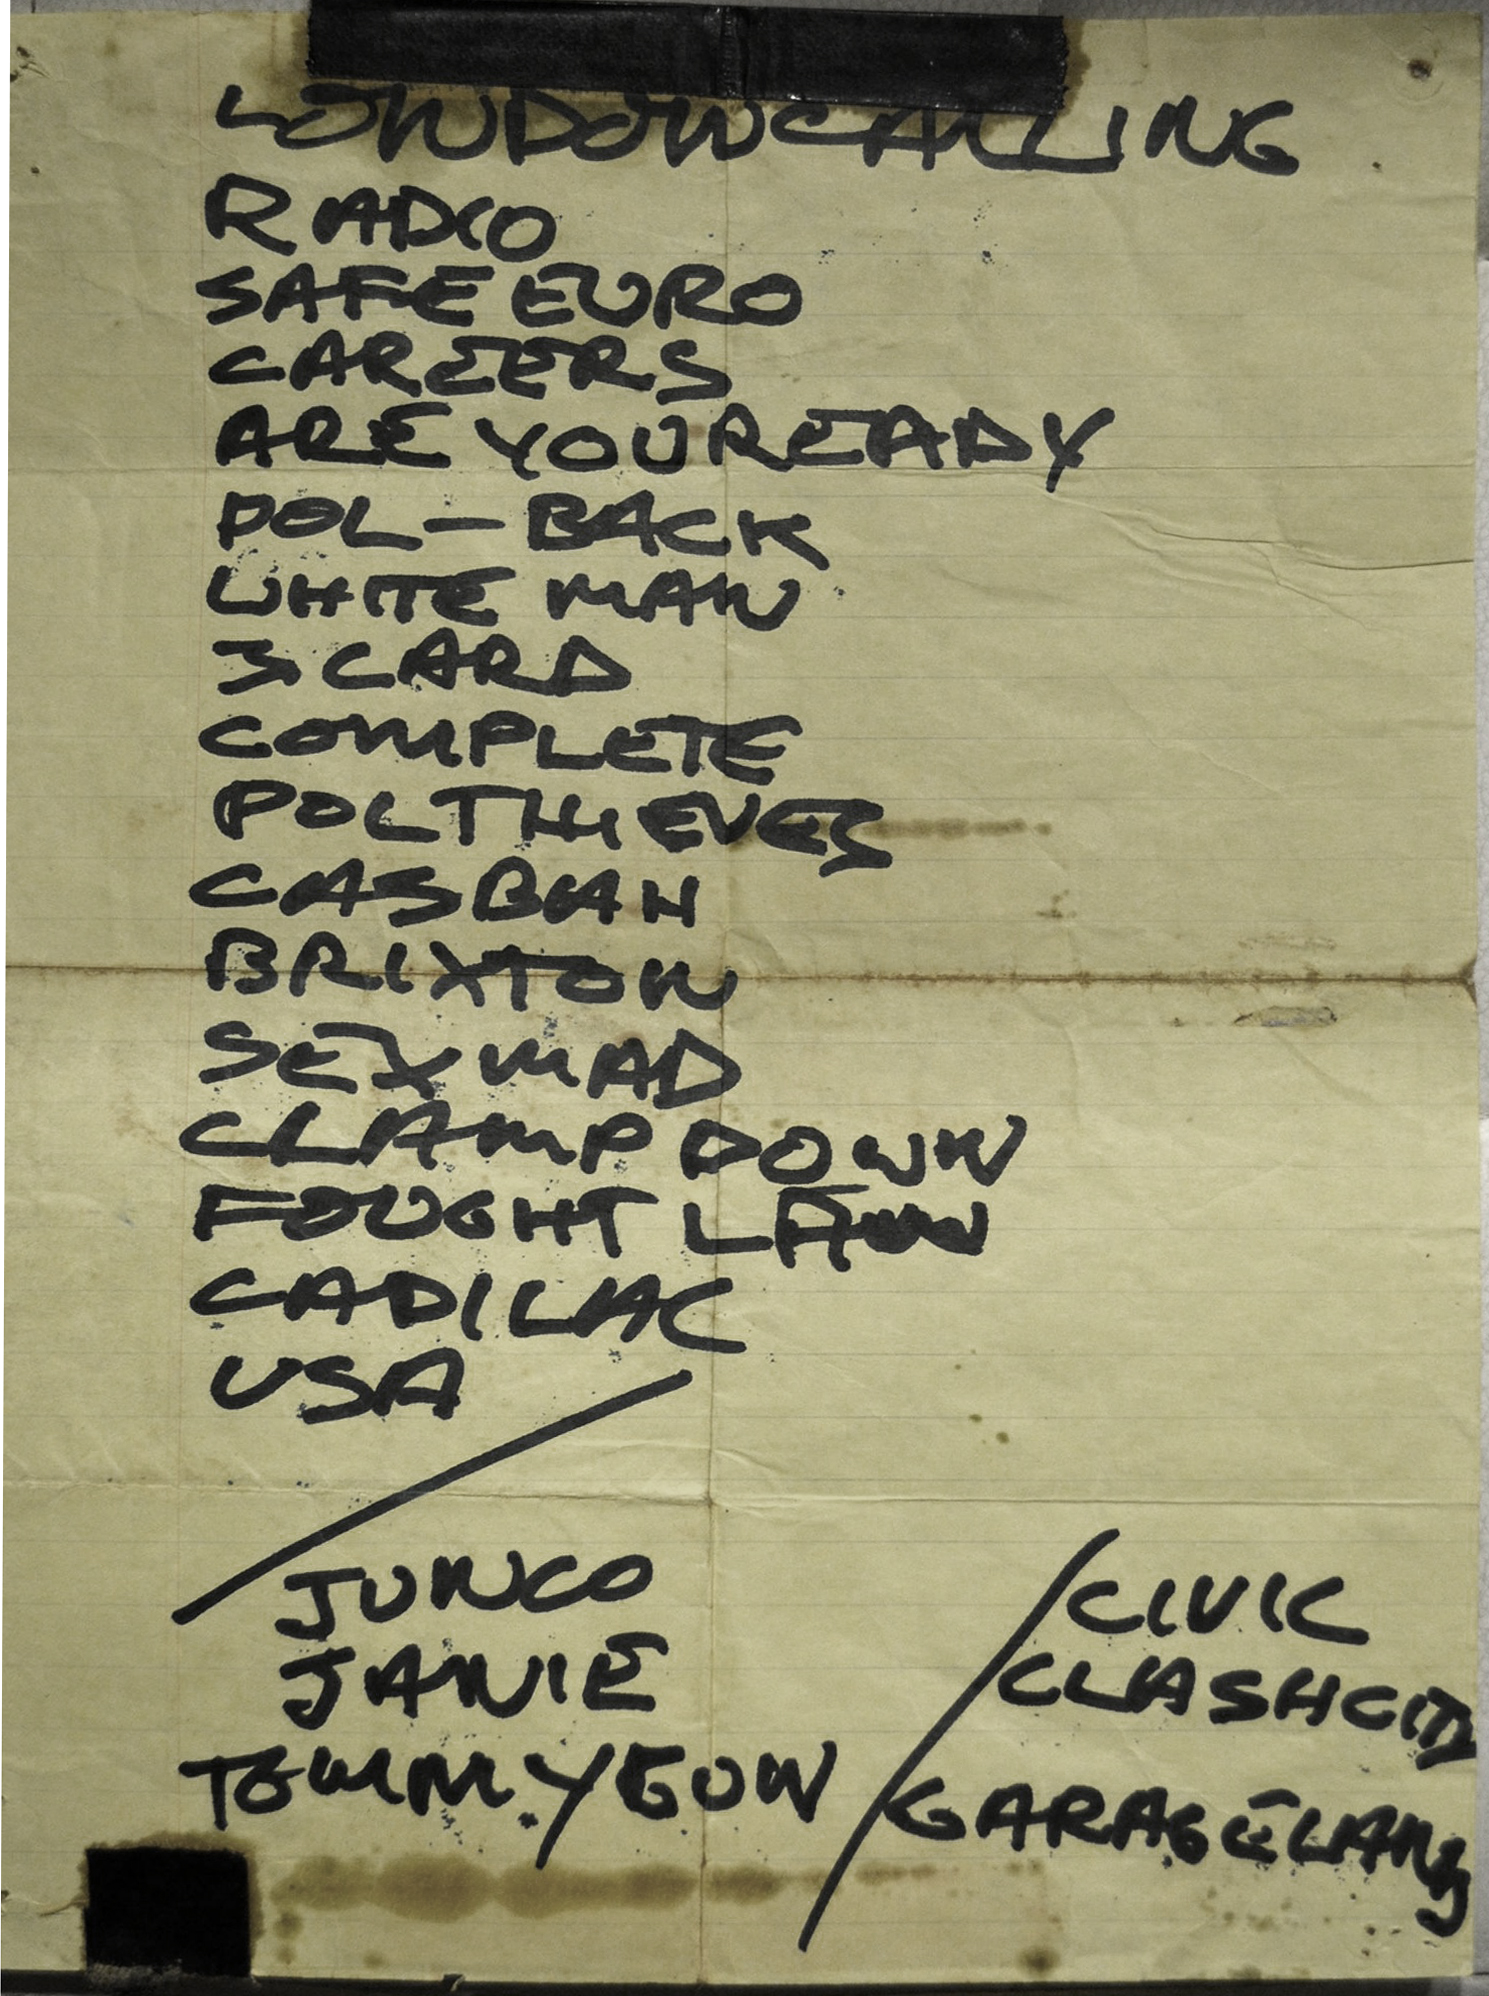 LONDON CALLING
RADIO
SAFE EURO
CAREERS
ARE YOU READY
POL - BACK
WHITE MAN
3 CARD
COMPLETE
POL THIEVES
CASBAH
BRIXTON
SEX MAD
CLAMP DOWN
FOUGHT LAW
CADILAC
USA
JUNCO
JANIE
TOMMY GUN
CIVIC
CLASH CITY
GARAGELAND